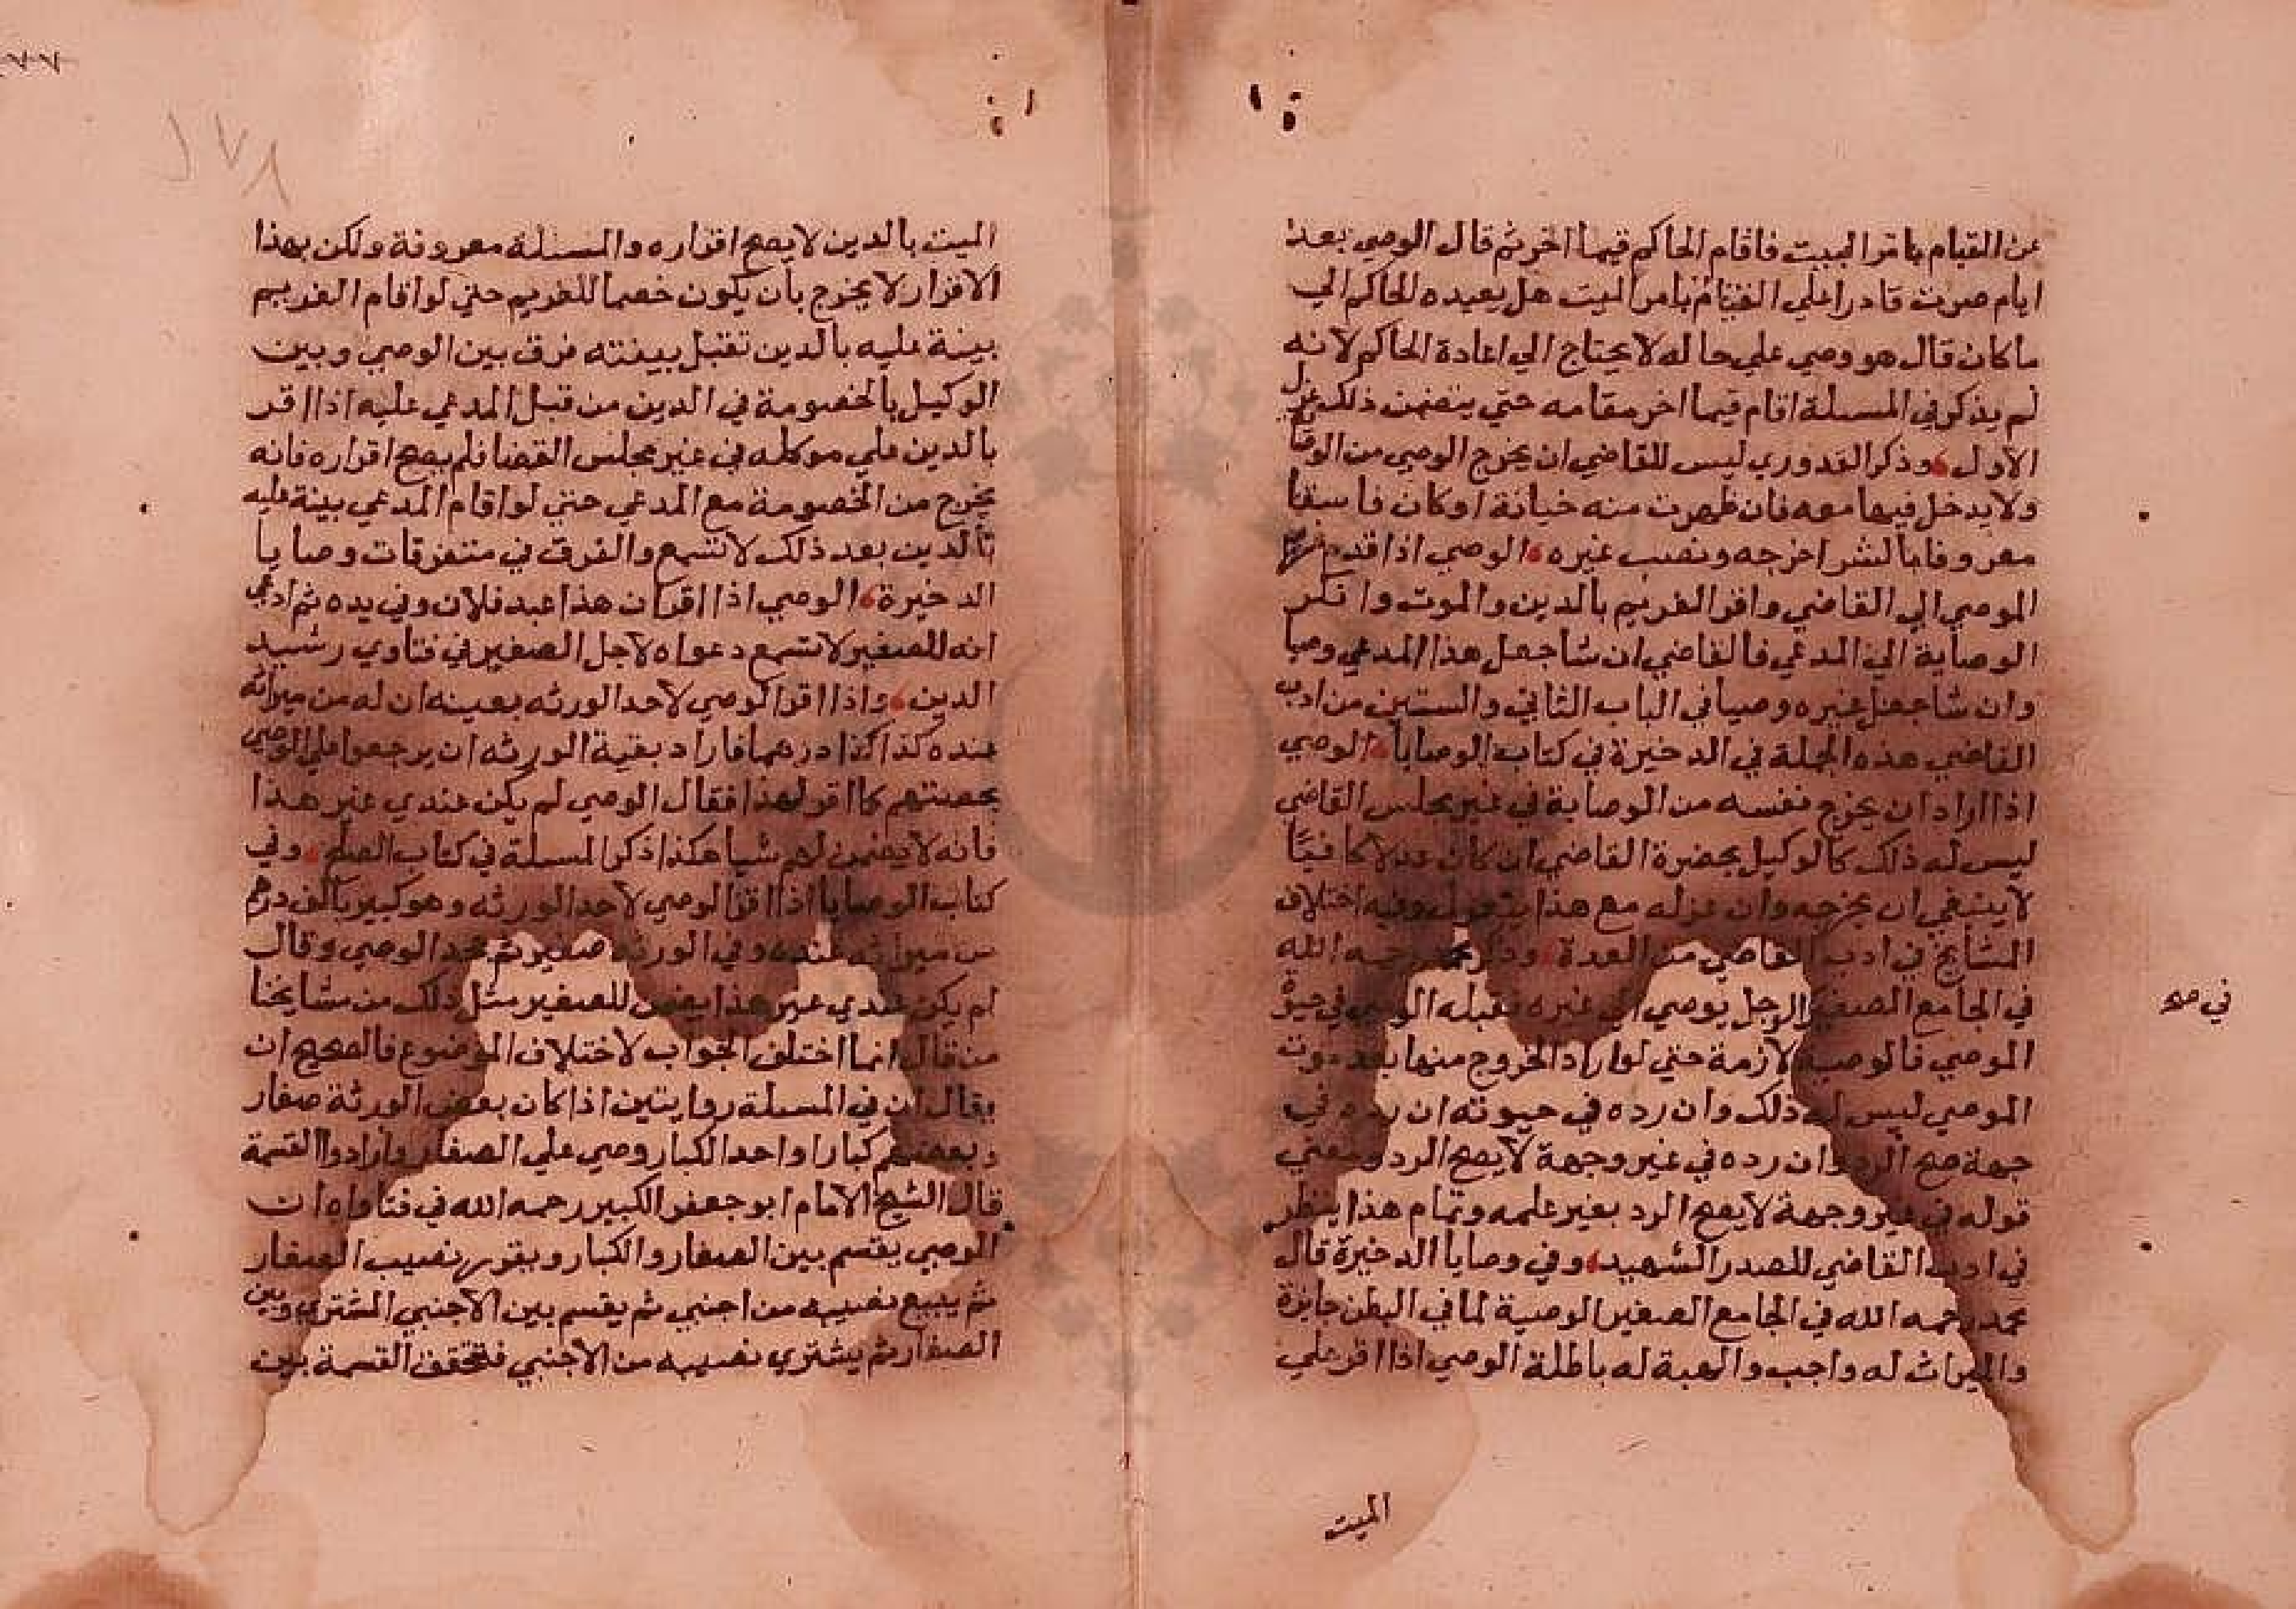 عن القيام بامر الميت فاقام الحاكم قيما اخر ثم قال الوصي بعد
ايام صرت قادرا علي القيام بامر الميت هل يعيده الحاكم الي
ما كان قال هو وصي علي حاله لا يحتاج الي اعادة الحاكم لانه
لم يذكر في المسئلة اقام قيما اخر مقامه حتي يتضمن ذلك عزل
الاول وذكر القدوري ليس للقاضي ان يخرج الوصي من الوصا
ولا يدخل فيها معه فان ظهرت منه خيانة او كان فاسقا
معروفا بالشر اخرجه ونصب غيره الوصي اذا قدم
الموصي الي القاضي واقر الغريم بالدين والموت وانكر
الوصاية الي المدعي فالقاضي ان شا جعل هذا المدعي وصيا
وان شا جعل غيره وصيا في الباب الثاني والستين من ادب
القاضي هذه الجملة في الدخيرة في كتاب الوصايا الوصي
اذا اراد ان يخرج نفسه من الوصاية في غير مجلس القاضي
ليس له ذلك كالوكيل بحضرة القاضي ان كان عدلا كافيا
لا ينبغي ان يخرجه وان عزله مع هذا ينعزل وفيه اختلاف
المشايخ في ادب القاضي من العدة وذكر محمد رحمه الله
في الجامع الصغير الرجل يوصي الي غيره فقبله الوصي في حيوة
الموصي فالوصية لازمة حتي لو اراد الخروج منها بعد موت
الموصي ليس له ذلك وان رده في حيوته ان رده في
جهة صح الرد وان رده في غير وجهة لا يصح الرد ومعني
قوله في غير وجهة لا يصح الرد بغير علمه وتمام هذا ينظر
في ادب القاضي للصدر الشهيد وفي وصايا الدخيرة قال
محمد رحمه الله في الجامع الصغير الوصية لما في البطن جايزة
والميراث له واجب والهبة له باطلة الوصي اذا اقر علي
الميت
الميت بالدين لا يصح اقراره والمسئلة معروفة ولكن بهذا
الاقرار لا يخرج بان يكون خصما للغريم حتي لو اقام الغريم
بينة عليه بالدين تقبل بينته فرق بين الوصي وبين
الوكيل بالخصومة في الدين من قبل المدعي عليه اذا اقر
بالدين علي موكله في غير مجلس القضا فلم يصح اقراره فانه
يخرج من الخصومة مع المدعي حتي لو اقام المدعي بينة عليه
بالدين بعد ذلك لا تسمع والفرق في متفرقات وصايا
الدخيرة الوصي اذا اقر ان هذا عبد فلان وفي يده ثم ادعي
انه للصغير لا تسمع دعواه لاجل الصغير في فتاوي رشيد
الدين واذا اقر الوصي لاحد الورثه بعينه ان له من ميراثه
عنده كذا كذا درهما فاراد بقية الورثه ان يرجعوا علي الوصي
بحصتهم كما اقر لهذا فقال الوصي لم يكن عندي غير هذا
فانه لا يضمن لهم شيا هكذا ذكر المسئلة في كتاب الصلح وفي
كتاب الوصايا اذا اقر الوصي لاحد الورثه وهو كبير بالف درهم
من ميراثه عنده وفي الورثه صغير ثم جحد الوصي وقال
لم يكن عندي غير هذا يضمن للصغير مثل ذلك من مشايخنا
من قال انما اختلف الجواب لاختلاف الموضوع فالصحيح ان
يقال ان في المسئلة روايتين اذا كان بعض الورثة صغار
وبعضهم كبارا واحد الكبار وصي علي الصغار وارادوا القسمة
قال الشيخ الامام ابو جعفر الكبير رحمه الله في فتاواه ان
الوصي يقسم بين الصغار والكبار ويقرر نصيب الصغار
ثم يبيع نصيبه من اجنبي ثم يقسم بين الاجنبي المشتري وبين
الصغار ثم يشتري نصيبه من الاجنبي فتحقق القسمة بين